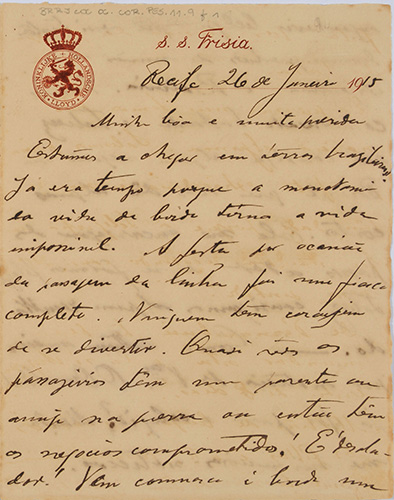 KONINKLIJKE HOLLANDSCHE LLOYD
s. s. Frisia.
Recife 26 de Janeiro 1915
Minha boa e muito querida
Estamos a chegar em terras brazileiras.
Já era tempo porque a monotonia
da vida de bordo torna a vida
impossivel. A festa por occasião
da passagem da linha foi um fiasco
completo. Ninguem tem coragem
de se divertir. Quasi todos os
passageiros tem um parente ou
amigo na guerra ou então têm
os negocios compromettidos! É desola-
dor! Vem comnosco a bordo um